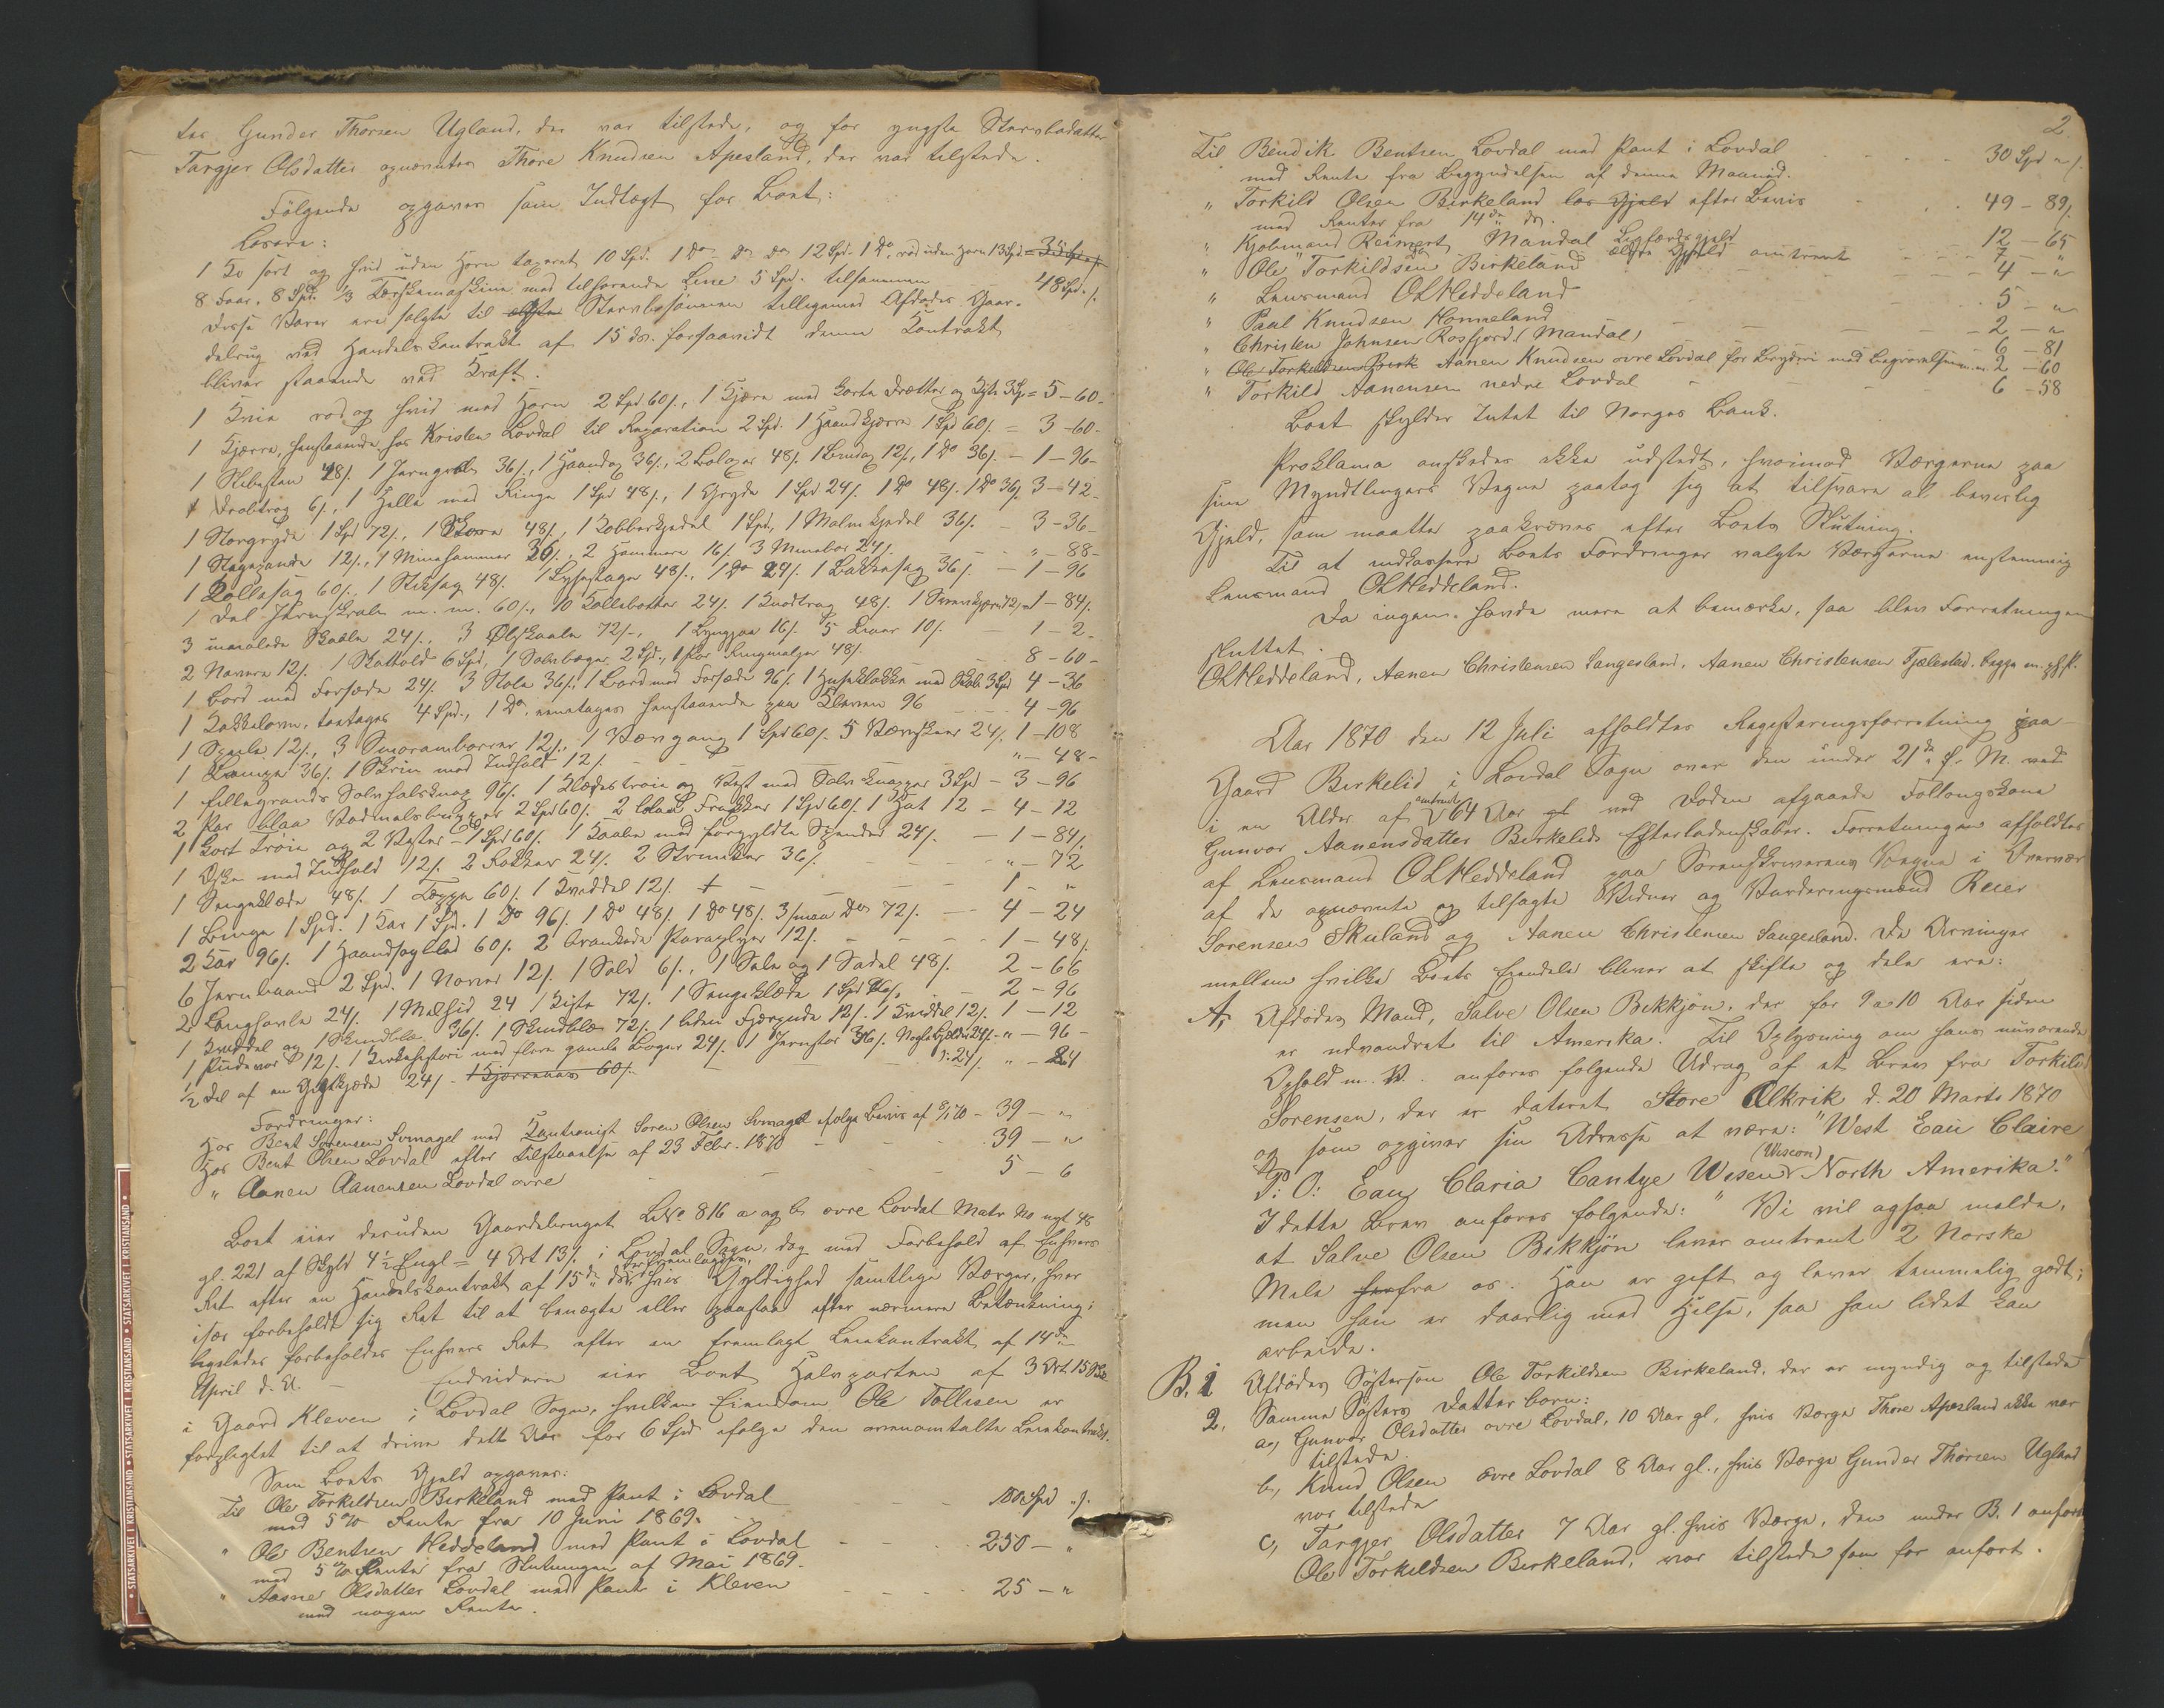 ter Gunder Thorsen Ugland, der var tilstede, og for yngste Stervbodatter
Targjer Olsdatter opnævntes Thore Knudsen Apesland, der var tilstede.
Følgende opgaves som Indtægt for Boet:
Løsøre:
1 Ko sort og hvid uden Horn taxeret 10 Spd. 1 Do Do Do 12 Spd. 1 Do. rød uden Horn 13 Spd =
8 Faar. 8 Spd. 1/3 Tærskemaskine med tilhørende Line 5 Spd. tilsammen 48 Spd. /.
Disse Varer ere solgte til ældste Stervbosønnen tilligemed Afdødes Gaar-
delrug ved Handelskontrakt af 15 ds. forsaavidt denne Kontrakt
bliver staaende ved Kraft.
1 Kvie rød og hvid med Horn 2 Spd 60/., 1 Kjærre med korte Drætter og 3 Sp = 5 - 60 -
1 Kjærre, henstaaende hos Kristen Lovdal til Reparation 2 Spd. 1 Haandkjærre 1 Spd 60/. = 3 - 60 -
1 Slibesten 48/. 1 Jerngrev 36/., 1 Haandøx 36/., 2 Boløxer 48/. 1 12/., 1 Do 36/. - 1 - 96 -
1 6/., 1 Helle med Ringe 1 Spd 48/., 1 Gryde 1 Spd 24/. 1 Do 48/. 1 Do 36/. 3 - 42 -
1 Storgryde 1 Spd 72/., 1 48/., 1 Kobberkjedel 1 Spd, 1 Malmkjedel 36/. - 3 - 36 -
1 Stegepande 12/., 1 Minehammer 36/., 2 Hammere 16/. 3 Minebor 24/. - - " - 88 -
1 60/., 1 Stiksag 48/. 1 Lysestage 48/., 1 Do 24/. 1 Bakkesag 36/. - 1 - 96
1 Del m. m. 60/., 10 24/. 1 48/. 1 12/. = 1 - 84/.
3 umalede Skaale 24/., 3 Ølskaale 72/., 1 16/. 5 10/. - 1 - 2 -
2 Navere 12/. 1 Skathold 6 Spd, 1 Sølvbæger 2 Spd., 1 Par 48/. - 8 - 60 -
1 Bord med Forsæde 24/. 3 Stole 36/., 1 Bord med Forsæde 96/. 1 Husklokke med Skab 3 Spd 4 - 36
1 Kakkelovn, toetages 4 Spd., 1 Do. eenetages henstaaende paa Kleven 96 - - 4 - 96
1 12/., 3 Smøramborrer 12/., 1 Vævgang 1 Spd 60/. 5 Vævskeer 24/. 1 - 108
1 Lampe 36/. 1 Skrin med Indhold 12/. - " - 48 -
1 Sølv halsknap 96/. 1 Klædestrøie og Vest med Sølv Knapper 3 Spd - 3 - 96
2 Par blaa Vadmelsbuxer 2 Spd 60/. 2 blaa Frakker 1 Spd 60/. 1 Hat 12 - 4 - 12
1 kort Trøie og 2 Veste - 1 Spd 60/. 1 Kaabe med forgyldte Spænder 24/. - 1 - 84/.
1 Æske med Indhold 12/. 2 Rokker 24/. 2 36/. - - " - 72
1 Sengeklæde 48/. 1 Tæppe 60/. 1 Kviddel 12/. - - 1 - "
1 Binge 1 Spd. 1 Kar 1 Spd. 1 Do 96/. 1 Do 48/. 1 Do 48/. 3 smaa Do 72/. - - 4 - 24
2 Kar 96/. 1 Haandsagblad 60/. 2 Paraplyer 12/. - - 1 - 48/.
6 Jernbaand 2 Spd. 1 Naver 12/. 1 Sold 6/., 1 Sele og 1 Sadel 48/. 2 - 66
2 Langhøvle 24/. 1 24 1 Kiste 72/. 1 Sengeklæde 1 Spd - 2 - 96
1 Kviddel og 1 36/. 1 72/. 1 liden 12/. 1 Kviddel 12/. 1 - 12
1 Pudevar 12/. 1 Kirkehistori med flere gamle Bøger 24/. 1 Jernstør 36/. 24/. - " - 96 -
1/2 Del af en 24/. 1 60/. - 24/. " - 24
Fordringer:
Hos Bent Sørensen Svinagel med Kautionist Søren Olsen Svinagel ifølge Bevis af 8/1 70 - 39 - "
Hos Bent Olsen Lovdal efter Tilstaaelse af 23 Febr. 1870 - 39 - "
" Aanen Aanensen Lovdal øvre - 5 - 6
Boet eier desuden Gaardebruget LNo 816 a og b øvre Lovdal Matr No nyt 48
gl. 221 af Skyld 4 1/2 Engl = 4 Ort 13/. i Lovdal Sogn, dog med Forbehold af Enhvers
Ret efter en fremlagt Handelskontrakt af 15de ds, hvis Gyldighed samtlige Værger, hver
især forbeholdt sig Ret til at benægte eller paastaa efter nærmere Betænkning;
ligeledes forbeholdes Enhvers Ret efter en fremlagt Leiekontrakt af 14de
April d. A. - Endvidere eier Boet Halvparten af 3 Ort 15
i Gaard Kleven i Lovdal Sogn, hvilken Eiendom Ole Tollisen er
forpligtet til at drive dette Aar for 6 Spd ifølge den ovenomtalte Leiekontrakt.
Som Boets Gjeld opgaves:
Til Ole Torkildsen Birkeland med Pant i Lovdal - - 100 Spd "/.
med 5 % Renter fra 10 Juni 1869.
" Ole Bentsen Heddeland med Pant i Lovdal - - 250 - "
med 5 % Renter fra Slutningen af Mai 1869.
" Aasne Olsdatter Lovdal med Pant i Kleven - - 25 - "
med nogen Rente.
2.
Til Bendik Bentsen Lovdal med Pant i Lovdal - - 30 Spd "/.
med Rente fra Begyndelsen af denne Maaned.
" Torkild Olsen Birkeland løs Gjeld efter Bevis - - 49 - 89/.
med Renter fra 14de ds.
" Kjøbmand Reimert, Mandal - - 12 - 65
" Ole Torkildsen Birkeland ældre Gjeld omtrent - - 7 - "
" Lensmand OLHeddeland - - 4 - "
" Paul Knudsen Homeland - - 5 - "
" Christen Johnsen Rosfjord (Mandal) - - 2 - "
" Ole Torkildsen Birk Aanen Knudsen øvre Lovdal for Bryderi med Begravelsen m. m. 6 - 81
2 - 60
" Torkild Aanensen nedre Lovdal - - 6 - 58
Boet skylder Intet til Norges Bank.
Proklama ønskedes ikke udstedt, hvorimod Værgerne paa
sine Myndtlingers Vegne paatog sig at tilsvare al bevislig
Gjeld, som maatte paakræves efter Boets Slutning.
Til at indkassere Boets Fordringer valgte Værgerne enstemmig
Lensmand OLHeddeland.
Da ingen havde mere at bemærke, saa blev Forretningen
sluttet.
OLHeddeland, Aanen Christensen Sangesland, Aanen Christensen Tjælestad. begge m. p. P.
Aar 1870 den 12 Juli afholdtes Registreringsforretning paa
Gaard Birkelid i Lovdal Sogn over den under 21de f. M. ved
i en Alder af omtrent 64 Aar gl ved Døden afgaaede Føllougskone
Gunvor Aanensdatter Birkelids Efterladenskaber. Forretningen afholdtes
af Lensmand OLHeddeland paa Sorenskriverens Vegne i Overvær
af de opnævnte og tilsagte Vidner og Vurderingsmænd Reier
Sørensen Skuland og Aanen Christensen Sangesland. De Arvinger
mellem hvilke Boets Eiendele bliver at skifte og dele ere:
A, Afdødes Mand, Salve Olsen Bekkjøn, der for 9 a 10 Aar siden
er udvandret til Amerika. Til Oplysning om hans nuværende
Ophold m. V. anføres følgende Udrag af et Brev fra Torkild
Sørensen, der er dateret Store Elkrik d. 20 Marts 1870
og som opgiver sin Adresse at være: "West Eau Claire
P: O: Eau Claria Cantye Wesens (Wiscon) North Amerika."
I dette Brev anføres følgende: "Vi vil ogsaa melde,
at Salve Olsen Bekkjøn lever omtrent 2 Norske
Mile herfra os. Han er gift og lever temmelig godt;
men han er daarlig med Helse, saa han lidet kan
arbeide.
B. 1 Afdødes Søstersøn Ole Torkildsen Birkeland, der er myndig og tilstede
2, Samme Søsters Datter børn:
a, Gunvor Olsdatter øvre Lovdal, 10 Aar gl, hvis Værge Thore Apesland ikke var
tilstede.
b, Knud Olsen øvre Lovdal 8 Aar gl., hvis Værge Gunder Thorsen Ugland
var tilstede
c, Targjer Olsdatter 7 Aar gl. hvis Værge, den under B. 1 anført
Ole Torkildsen Birkeland, var tilstede som før anført.
• STATSARKIVET I KRISTIANSAND • STATSARKIVET I KRISTIANSAND • STATSARKIVET I KRISTIANSAND •